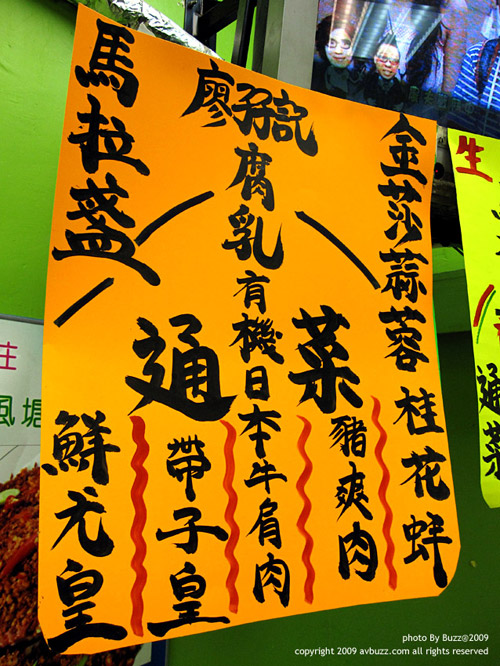 馬拉盞
廖孖記腐乳
金莎蒜蓉
通菜
鮮尤皇
帶子皇
有機日本牛肩肉
豬爽肉
桂花蚌
生
通菜
風塘
photo By Buzz@2009
copyright 2009 avbuzz.com all rights reserved